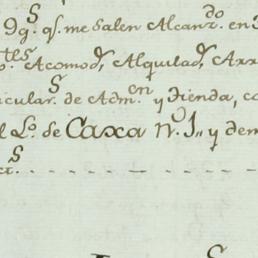 Dg.s qs. me Salen Alcanz.do en
tes Acomod.s, Alquilad.s, Arr
icular.s de Adm.on y Tienda, co
el L.o de Caxa N.o 1,, y dem